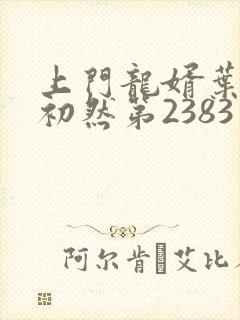 上門龍婿葉
初然第2383
阿尔肯·艾比